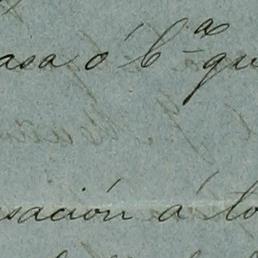 asa ó b.ª qu
sación á lo